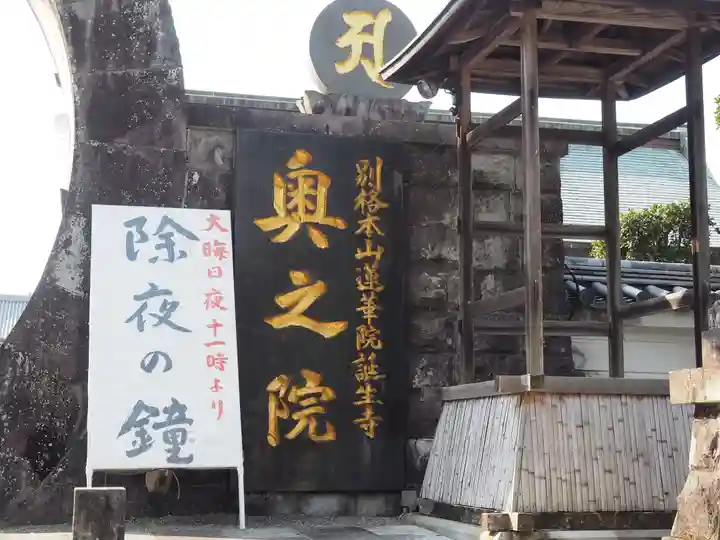 別格本山蓮華院誕生寺
奥之院
大晦日夜十一時より
除夜の鐘